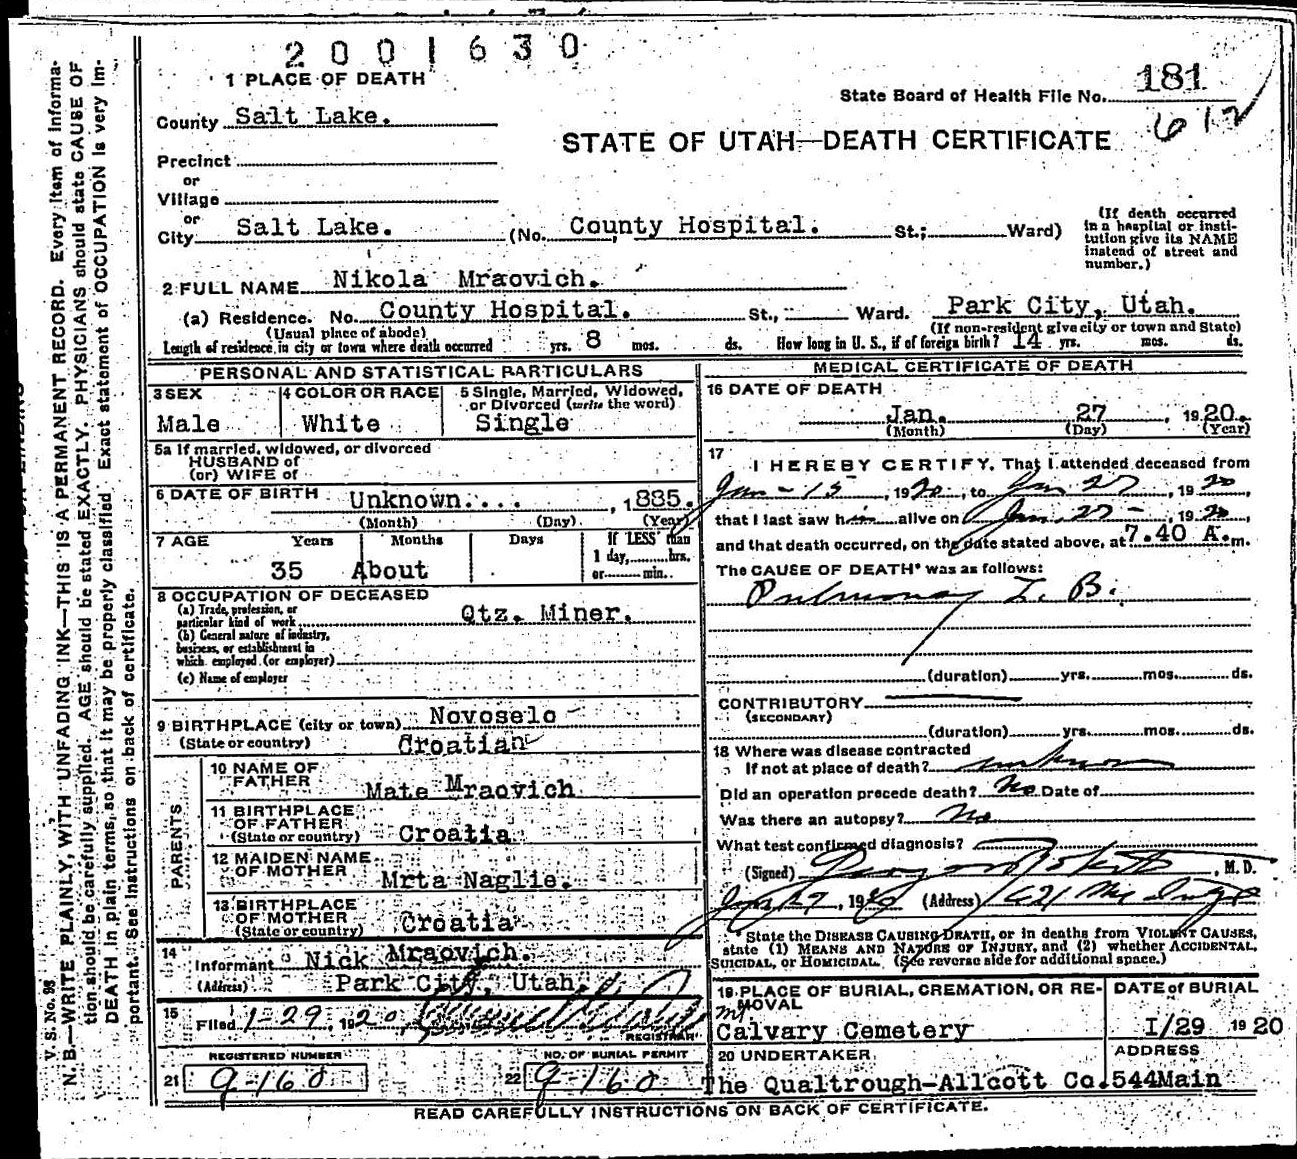 2001630
1 PLACE OF DEATH
State Board of Health File No. 181
612
County Salt Lake.
STATE OF UTAH—DEATH CERTIFICATE
Precinct
or
Village
or
City Salt Lake. (No. County Hospital. St.; Ward)
(If death occurred in a hospital or institution give its NAME instead of street and number.)
2 FULL NAME Nikola Mraovich.
(a) Residence. No. County Hospital. St., Ward. Park City, Utah.
(Usual place of abode) (If non-resident give city or town and State)
Length of residence in city or town where death occurred yrs. 8 mos. ds. How long in U. S., if of foreign birth? 14 yrs. mos. ds.
PERSONAL AND STATISTICAL PARTICULARS
3 SEX
Male
4 COLOR OR RACE
White
5 Single, Married, Widowed,
or Divorced (write the word)
Single
5a If married, widowed, or divorced
HUSBAND of
(or) WIFE of
6 DATE OF BIRTH Unknown.... , 1885.
(Month) (Day) (Year)
7 AGE Years Months Days If LESS than
1 day, hrs.
or min.
35 About
8 OCCUPATION OF DECEASED
(a) Trade, profession, or
particular kind of work Qtz. Miner.
(b) General nature of industry,
business, or establishment in
which employed (or employer)
(c) Name of employer
9 BIRTHPLACE (city or town) Novoselo
(State or country) Croatian
PARENTS
10 NAME OF
FATHER Mate Mraovich
11 BIRTHPLACE
OF FATHER
(State or country) Croatia
12 MAIDEN NAME
OF MOTHER Mrta Naglie.
13 BIRTHPLACE
OF MOTHER
(State or country) Croatia
14
Informant Nick Mraovich.
(Address) Park City, Utah.
15
Filed 1-29, 1920,
REGISTRAR
REGISTERED NUMBER
21 9-160
NO. OF BURIAL PERMIT
22 9-160
MEDICAL CERTIFICATE OF DEATH
16 DATE OF DEATH
Jan. 27 , 1920.
(Month) (Day) (Year)
17
I HEREBY CERTIFY, That I attended deceased from
Jan - 15, 1920, to Jan 27, 1920,
that I last saw him alive on Jan. 27-, 1920,
and that death occurred, on the date stated above, at 7.40 A. m.
The CAUSE OF DEATH* was as follows:
Pulmonary T. B.
(duration) yrs. mos. ds.
CONTRIBUTORY
(SECONDARY)
(duration) yrs. mos. ds.
18 Where was disease contracted
If not at place of death? unknown
Did an operation precede death? No Date of
Was there an autopsy? No
What test confirmed diagnosis?
(Signed) , M. D.
Jan 27, 1920 (Address) 621
*State the DISEASE CAUSING DEATH, or in deaths from VIOLENT CAUSES,
state (1) MEANS AND NATURE OF INJURY, and (2) whether ACCIDENTAL,
SUICIDAL, or HOMICIDAL. (See reverse side for additional space.)
19 PLACE OF BURIAL, CREMATION, OR RE-
MOVAL
Mt Calvary Cemetery
DATE of BURIAL
I/29 1920
20 UNDERTAKER
The Qualtrough-Allcott Co.
ADDRESS
544Main
READ CAREFULLY INSTRUCTIONS ON BACK OF CERTIFICATE.
V. S. No. 98
N. B.—WRITE PLAINLY, WITH UNFADING INK—THIS IS A PERMANENT RECORD. Every item of informa-
tion should be carefully supplied. AGE should be stated EXACTLY. PHYSICIANS should state CAUSE OF
DEATH in plain terms, so that it may be properly classified. Exact statement of OCCUPATION is very im-
portant. See instructions on back of certificate.